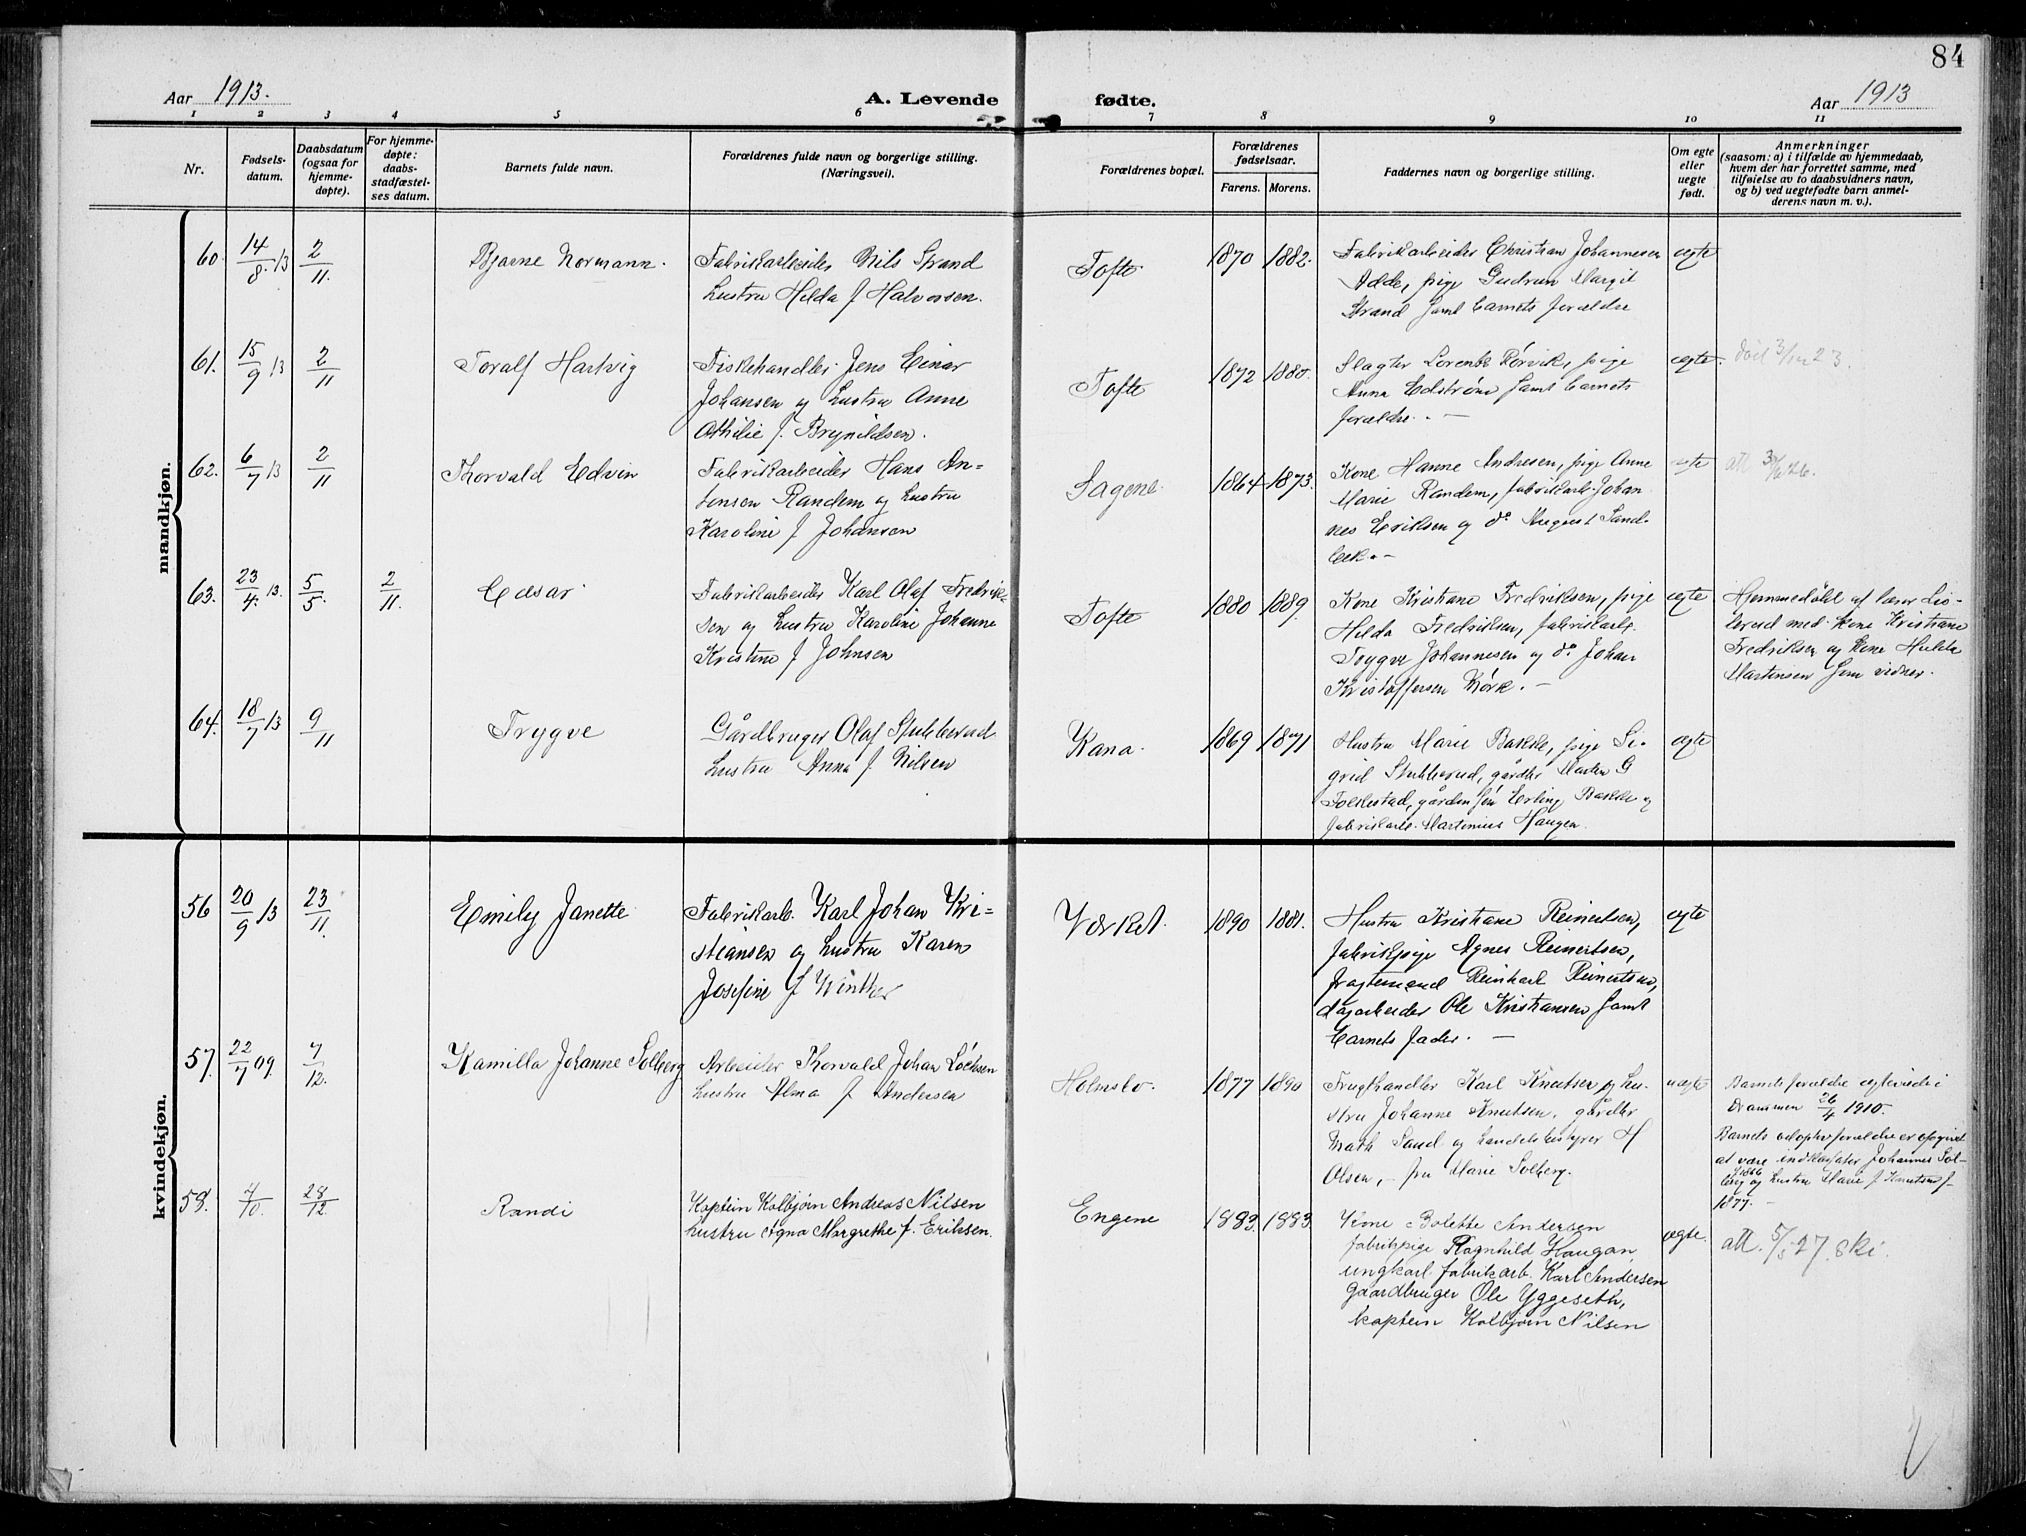 84
Aar 1913. A. Levende fødte. Aar 1913
1 2 3 4 5 6 7 8 9 10 11
Nr.
Fødsels-
datum.
Daabsdatum
(ogsaa for
hjemme-
døpte).
For hjemme-
døpte:
daabs-
stadfæstel-
ses datum.
Barnets fulde navn.
Forældrenes fulde navn og borgerlige stilling.
(Næringsvei).
Forældrenes bopæl.
Forældrenes
fødselsaar.
Farens. Morens.
Faddernes navn og borgerlige stilling.
Om egte
eller
uegte
født.
Anmerkninger
(saasom: a) i tilfælde av hjemmedaab,
hvem der har forrettet samme, med
tilføielse av to daabsvidners navn,
og b) ved uegtefødte barn anmel-
derens navn m. v.).
mandkjøn.
60. 14/8. 13 2/11. Bjarne Normann.
Fabrikarbeider Nils Strand
hustru Hilda f Halvorsen.
Tofte. 1870 1882.
Fabrikarbeider Christian Johannesen
pige Gudrun Margit
Strand samt barnets forældre
egte
61. 15/9 13 2/11 Toralf Hartvig
Fiskehandler Jens Einar
Johansen og hustru Anne
Othilie f. Brynildsen.
Tofte 1872 1880.
Slagter Lorents Rørvik, pige
Anna Edstrøm samt barnets
forældre. -
egte.
62. 6/7 13 2/11 Thorvald Edvin
Fabrikarbeider Hans An-
tonsen Randem og hustru
Karoline f Johansen
Sagene. 1864 1873.
Kone Hanne Andresen, pige Anne
Marie Randem, fabrikarb. Johan
nes Eriksen og do August Sand-
bek. -
egte
63. 23/4. 13. 5/5. 2/11. Edsar
Fabrikarbeider Karl Olaf Fredrik-
sen og hustru Karoline Johanne
Kristine f Johnsen
Tofte 1880 1889.
Kone Kristiane Fredriksen, pige
Hilda Fredriksen, fabrikarb.
Trygve Johannesen og do Johan
Kristoffersen Mørk. -
egte
Hjemmedøbt af lærer Lio-
berud med Kone Kristiane
Fredriksen og Kone Hulda
Martinsen som vidner.
64. 18/7 13 9/11 Trygve
Gårdbruger Olaf Stubberud
hustru Anna f Nilsen
Kana. 1869 1871
Hustru Marie Bakke, pige Si-
grid Stubberud, gårdbr Marten G
Tolkestad, gårdm søn Erling Bakke og
fabrikarb. Martinius Haugen.
egte
kvindekjøn.
56 20/9 13 23/11. Emily Janette
Fabrikarb. Karl Johan Kri-
stiansen og hustru Karen
Josefine f Winther
Værket. 1890 1881.
Hustru Kristiane Reinertsen,
fabrikpige Agnes Reinertsen,
fragtemand Reinhart Reinertsen,
dagarbeider Ole Kristiansen samt
barnets fader. -
egte
57. 22/7 09. 7/12. Kamilla Johanne Solberg
Arbeider Thorvald Johan Lochsen
hustru Alma f Andersen
Holmsbo. 1877 1890
Frugthandler Karl Knutsen og hu-
stru Johanne Knutsen, gårdbr
Math Sand og handelsbestyrer H
Olsen, - fru Marie Solberg.
uegte
Barnets forældre egteviede i
Drammen 26/4 1910.
Barnets adoptivforældre er opgivet
at være indkassator Johannes Sol-
berg f 1866 og hustru Marie f Knutsen f
1877. -
58. 7/10. 28/12. Randi
Kaptein Kolbjørn Andreas Nilsen
hustru Agna Margrethe f. Eriksen.
Engene 1883. 1883.
Kone Bolette Andersen
fabrikpige Ragnhild Haugan,
ungkarl fabrikarb. Karl Andersen
Gaardbruger Ole Yggeseth,
kaptein Kolbjørn Nilsen
egte.
att. 5/5 27. Ski.